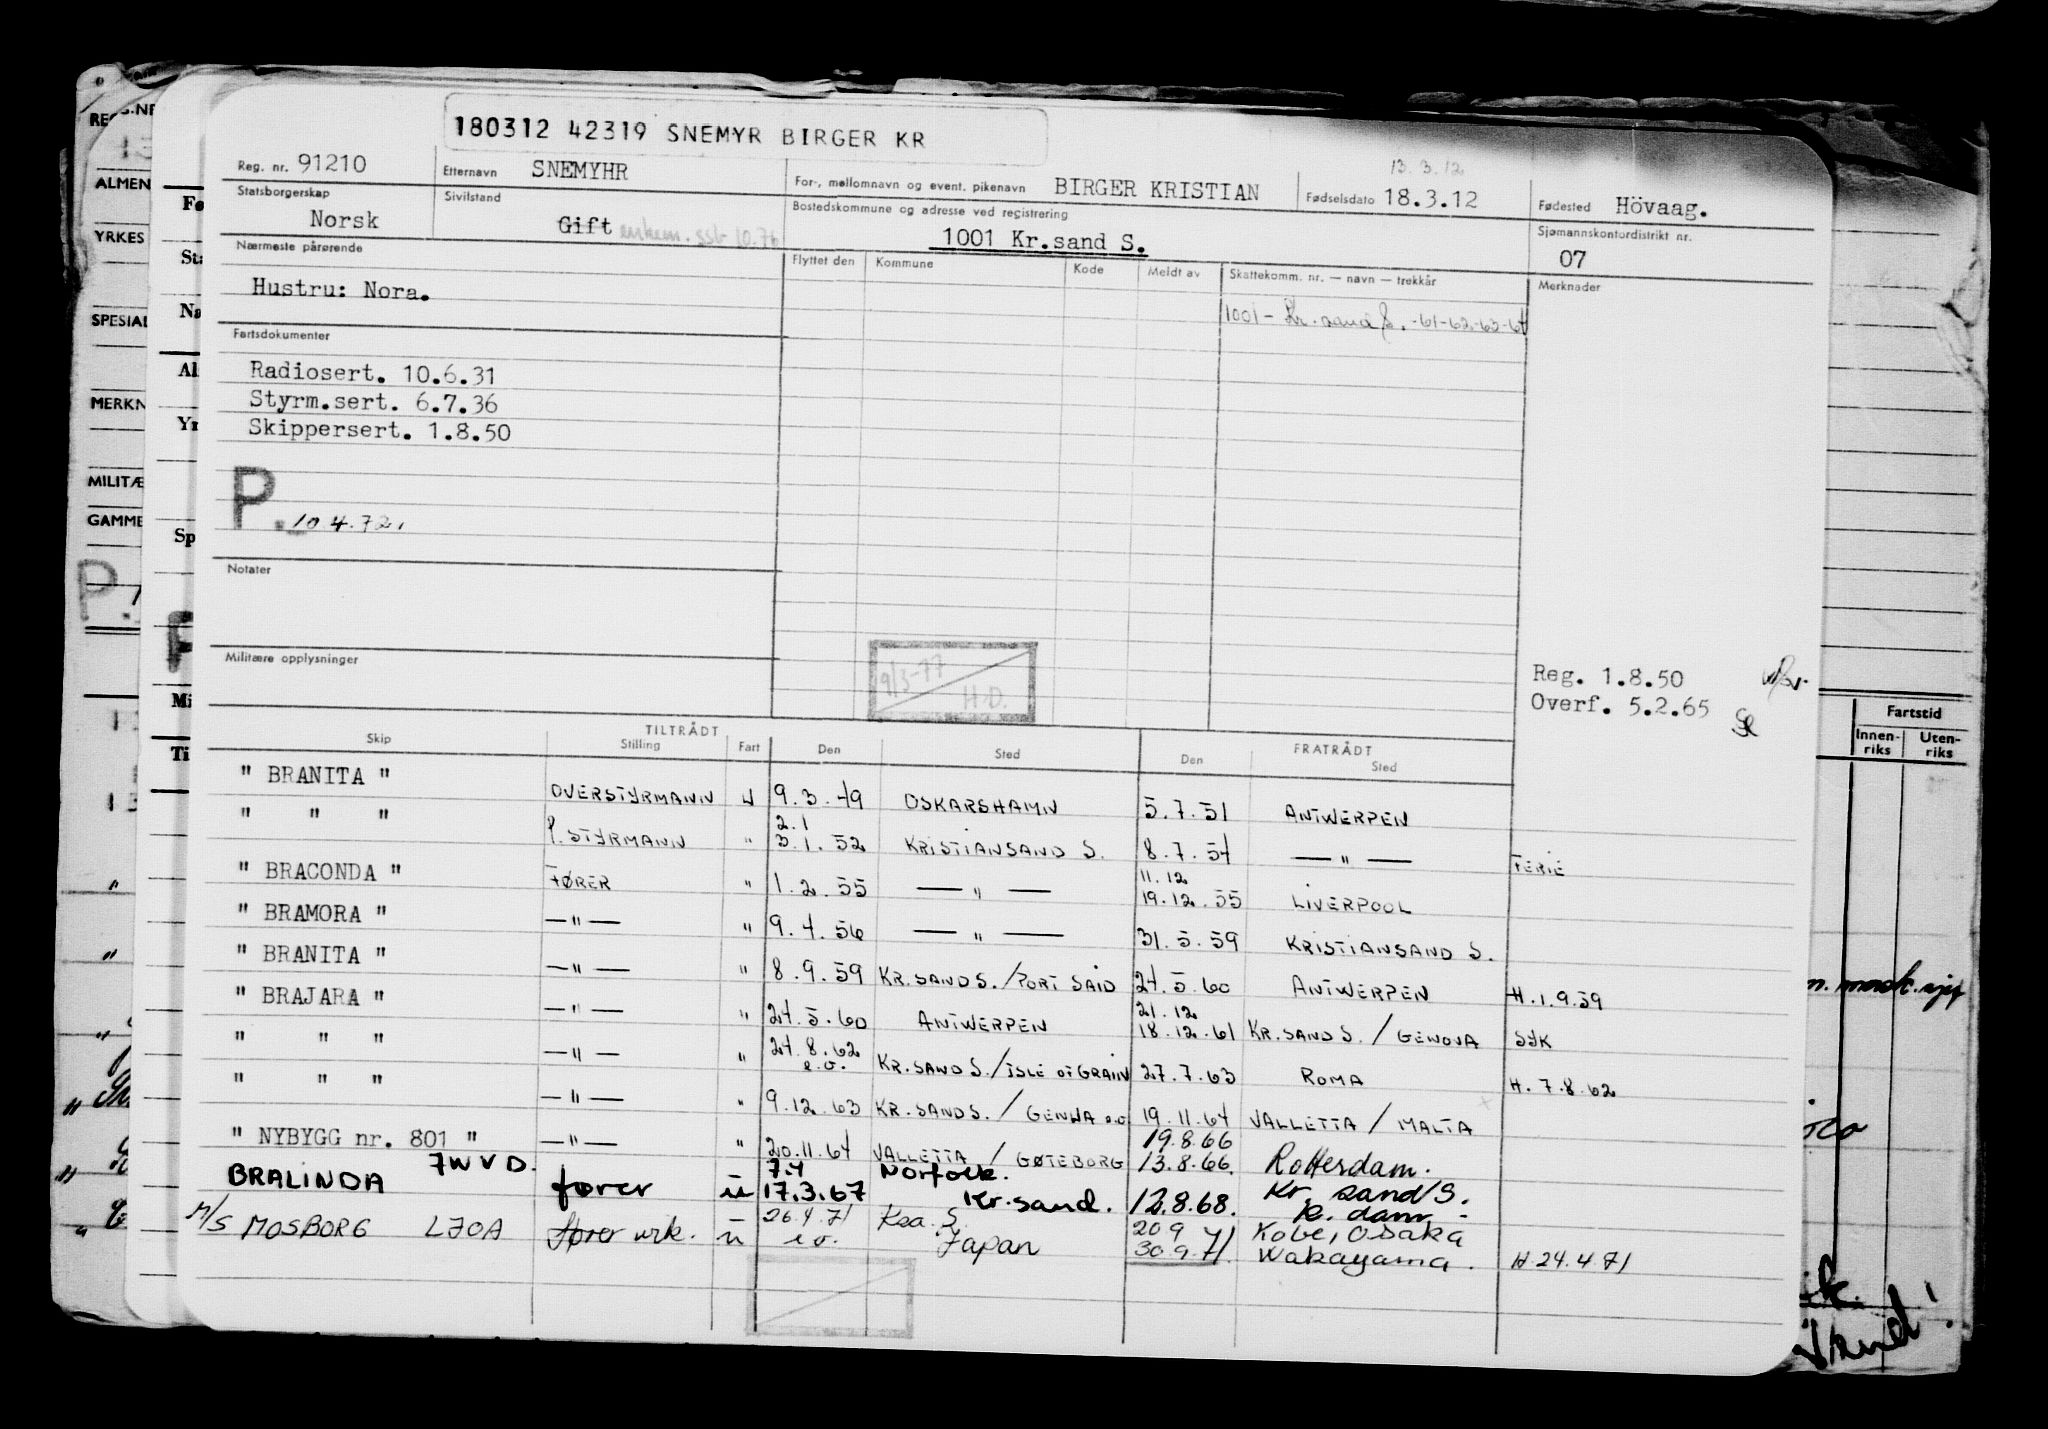 180312 42319 SNEMYR BIRGER KR
Reg. nr. 91210 Etternavn SNEMYHR For-, mellomnavn og event. pikenavn BIRGER KRISTIAN Fødselsdato 13.3.12 18.3.12 Fødested Hövaag.
Statsborgerskap Norsk Sivilstand Gift enkem. ssb 10.76 Bostedskommune og adresse ved registrering 1001 Kr.sand S. Sjømannskontordistrikt nr. 07
Nærmeste pårørende Flyttet den Kommune Kode Meldt av Skattekomm. nr. — navn — trekkår Merknader
Hustru: Nora. 1001 - Kr. sand S. -61-62-63-64
Fartsdokumenter
Radiosert. 10.6.31
Styrm.sert. 6.7.36
Skippersert. 1.8.50
P. 10.4.72.
Notater
Militære opplysninger
9/3-77 H.D.
Reg. 1.8.50
Overf. 5.2.65
TILTRÅDT FRATRÅDT
Skip Stilling Fart Den Sted Den Sted
" BRANITA " OVERSTYRMANN U 9.3.49 OSKARSHAMN 5.7.51 ANTWERPEN
" " " 1. STYRMANN " 2.1 3.1.52 KRISTIANSAND S. 8.7.54 — " — FERIE
" BRACONDA " FØRER " 1.2.55 — " — 11.12 19.12.55 LIVERPOOL
" BRAMORA " — " — " 9.4.56 — " — 31.5.59 KRISTIANSAND S.
" BRANITA " — " — " 8.9.59 KR.SAND S./PORT SAID 24.5.60 ANTWERPEN H.1.9.59
" BRAJARA " — " — " 24.5.60 ANTWERPEN 21.12 18.12.61 KR.SAND S./GENOVA SYK
" " " — " — " 24.8.62 e.o. KR.SAND S./ISLE OF GRAIN 27.7.63 ROMA H.7.8.62
" " " — " — " 9.12.63 KR.SAND S./GENUA e.o 19.11.64 VALLETTA/MALTA
" NYBYGG nr. 801 " — " — " 20.11.64 VALLETTA/GØTEBORG 19.8.66 13.8.66. Rotterdam.
BRALINDA 7WVD. fører u 7.4 17.3.67 Norfolk. Kr.sand. 12.8.68. Kr. sand S. R. dam.
M/S MOSBORG LJOA fører vik. u 26.4.71 e.o. Kra. S Japan 20.9 30.9.71. Kobe, Osaka Wakayama. H.24.4.71
REG.NR
ALMEN
YRKES
SPESIAL
MERKN
MILITÆ
GAMME
P.
Fø
Sta
Na
Al
Yr
Sp
Mi
Ti
Fartstid
Innen-riks Uten-riks